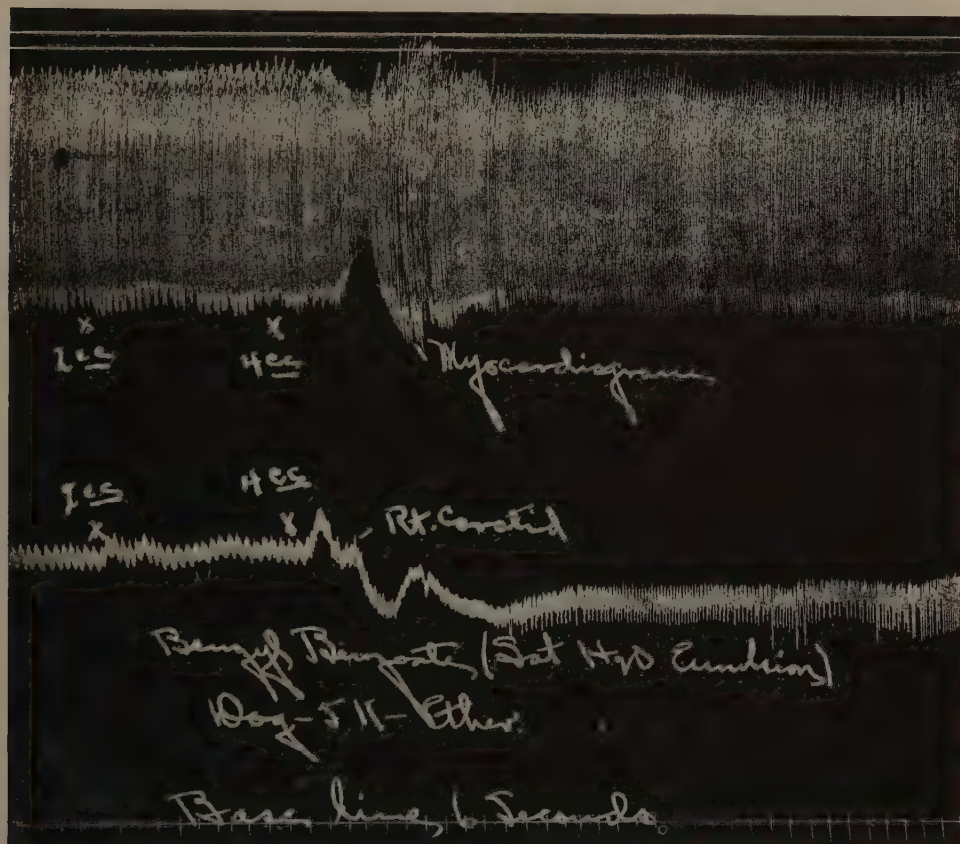 x x
1cc 4cc
Myocardiogram
1cc 4cc
x x
Rt. Carotid
Benzyl Benzoate (Sat H2O Emulsion)
Dog - 5 K - Ether
Base line, 6 Seconds.